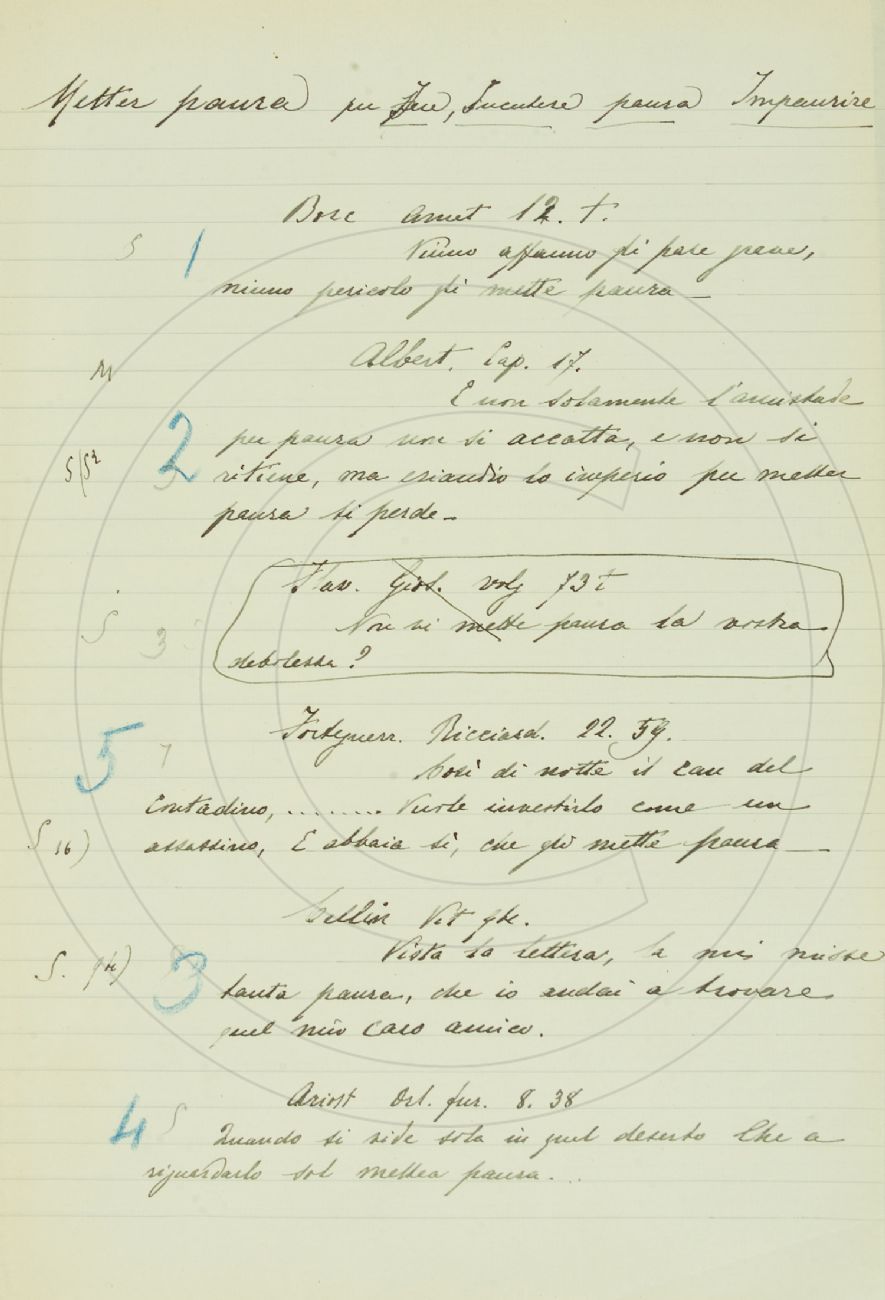 Metter paura per Fare, Incutere paura Impaurire
Bocc Amet 12. t.
S 1 Niuno affanno gli pare grave,
niuno pericolo gli mette paura —
Albert. Cap. 17.
M E non solamente l'amistade
2 per paura non si accatta, e non si
ritiene, ma eziandio lo imperio per metter
paura si perde —
Fav. volg 73 t
S 3 Non vi mette paura la vostra
debolezza?
Forteguerr. Ricciard. 22. 59.
5 7 Così di notte il can del
contadino, ........ Vuole investirlo come un
S 16) assassino, E abbaia sì, che gli mette paura —
Cellin Vit 96.
S. 96) Vista la lettera, la mi misse
3 tanta paura, che io andai a trovare
quel mio caro amico.
Ariost Orl. fur. 8. 38
4 S Quando si vide sola in quel deserto Che a
riguardarlo sol mettea paura...